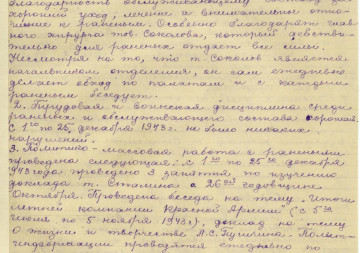 благодарность обслуживающему
хороший уход, лечение и внимательное отно-
шение к раненым. Особенно благодарят глав-
ного хирурга тов. Соколова, который действи-
тельно для раненых отдает все силы.
Несмотря на то, что т. Соколов является
начальником отделения, он сам ежедневно
делает обход по палатам и с каждым
раненым беседует.
2. Трудовая и воинская дисциплина среди
раненых и обслуживающего состава хорошая.
С 1го по 25 декабря 1943 г. не было никаких
нарушений.
3. Политико-массовая работа с ранеными
проведена следующая: с 1го по 25го декабря
1943 года проведено 3 занятия по изучению
доклада т. Сталина о 26ой годовщине
Октября. Проведена беседа на тему „Итоги
летней компании Красной Армии (с 5го
июля по 5 ноября 1943 г.), доклад на тему
О жизни и творчестве А.С. Пушкина. Полит-
информации проводятся ежедневно по